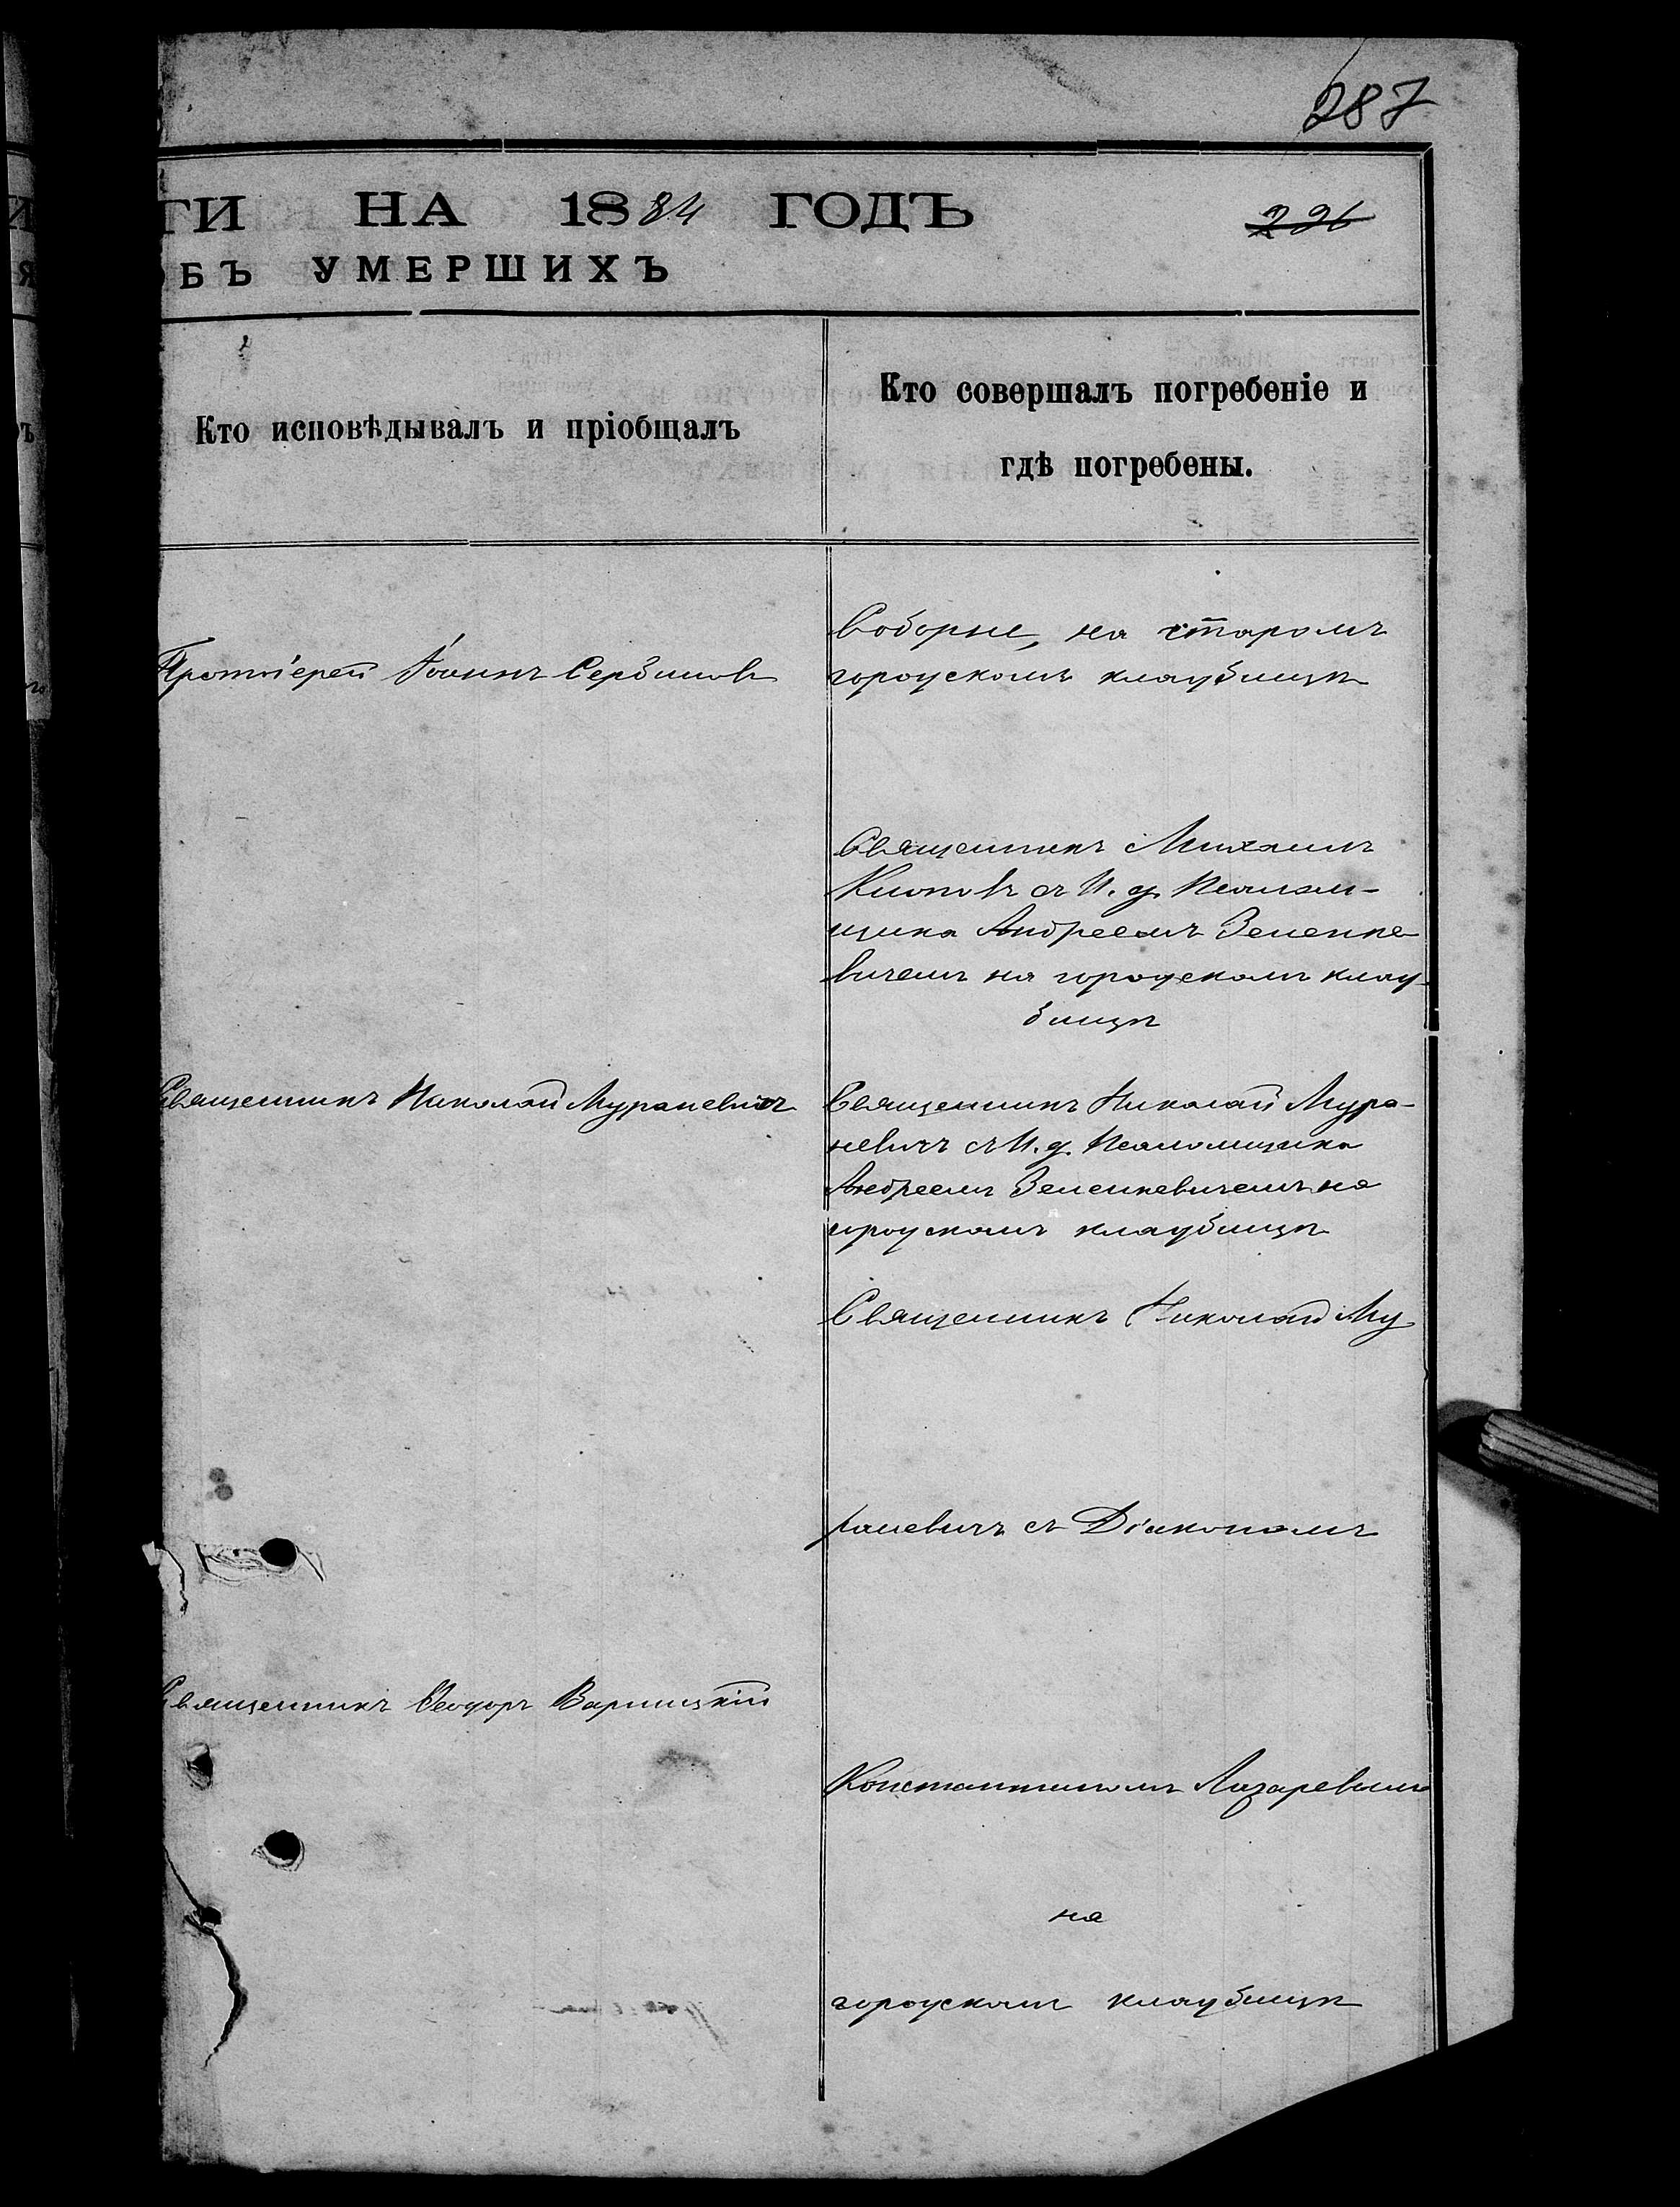 287
ГИ НА 1884 ГОДЪ
226
ОБЪ УМЕРШИХЪ
Кто исповѣдывалъ и пріобщалъ
Кто совершалъ погребеніе и
гдѣ погребены.
Протоіерей Іоаннъ Сербиновъ
Соборне, на старомъ
городскомъ кладбищѣ
Священникъ Михаилъ
съ И. д. Псалом-
щика Андреемъ Зеленке
вичемъ на городскомъ клад-
бищѣ
Священникъ Николай Мураневичъ
Священникъ Николай Мура-
невичъ съ И. д. Псаломщика
Андреемъ Зеленкевичемъ на
городскомъ кладбищѣ
Священникъ Николай Му
раневичъ съ Діакономъ
Священникъ Ѳеодоръ Варницкій
Константиномъ Лазаревымъ
на
городскомъ кладбищѣ